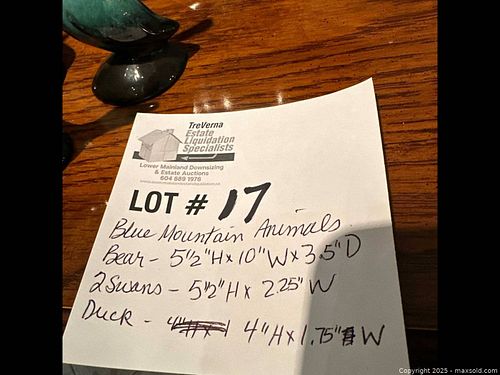 TreVerna
Estate
Liquidation
Specialists
Lower Mainland Downsizing
& Estate Auctions
604 889 1978
LOT # 17
Blue Mountain Animals.
Bear - 5 1/2" H x 10" W x 3.5" D
2 Swans - 5 1/2" H x 2.25" W
Duck - 4" H x 1.75" W
Copyright 2025 - maxsold.com